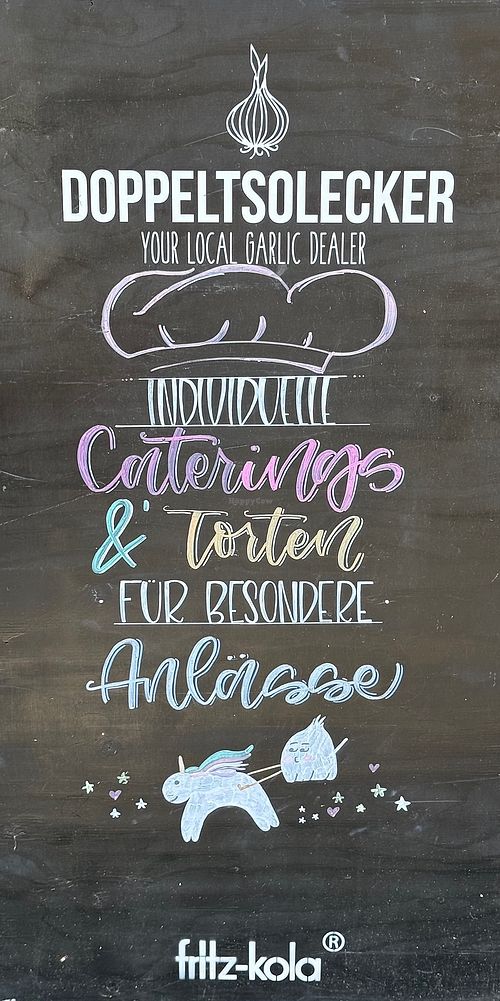 DOPPELTSOLECKER
YOUR LOCAL GARLIC DEALER
INDIVIDUELLE
Caterings
& Torten
FÜR BESONDERE
Anlässe
fritz-kola®